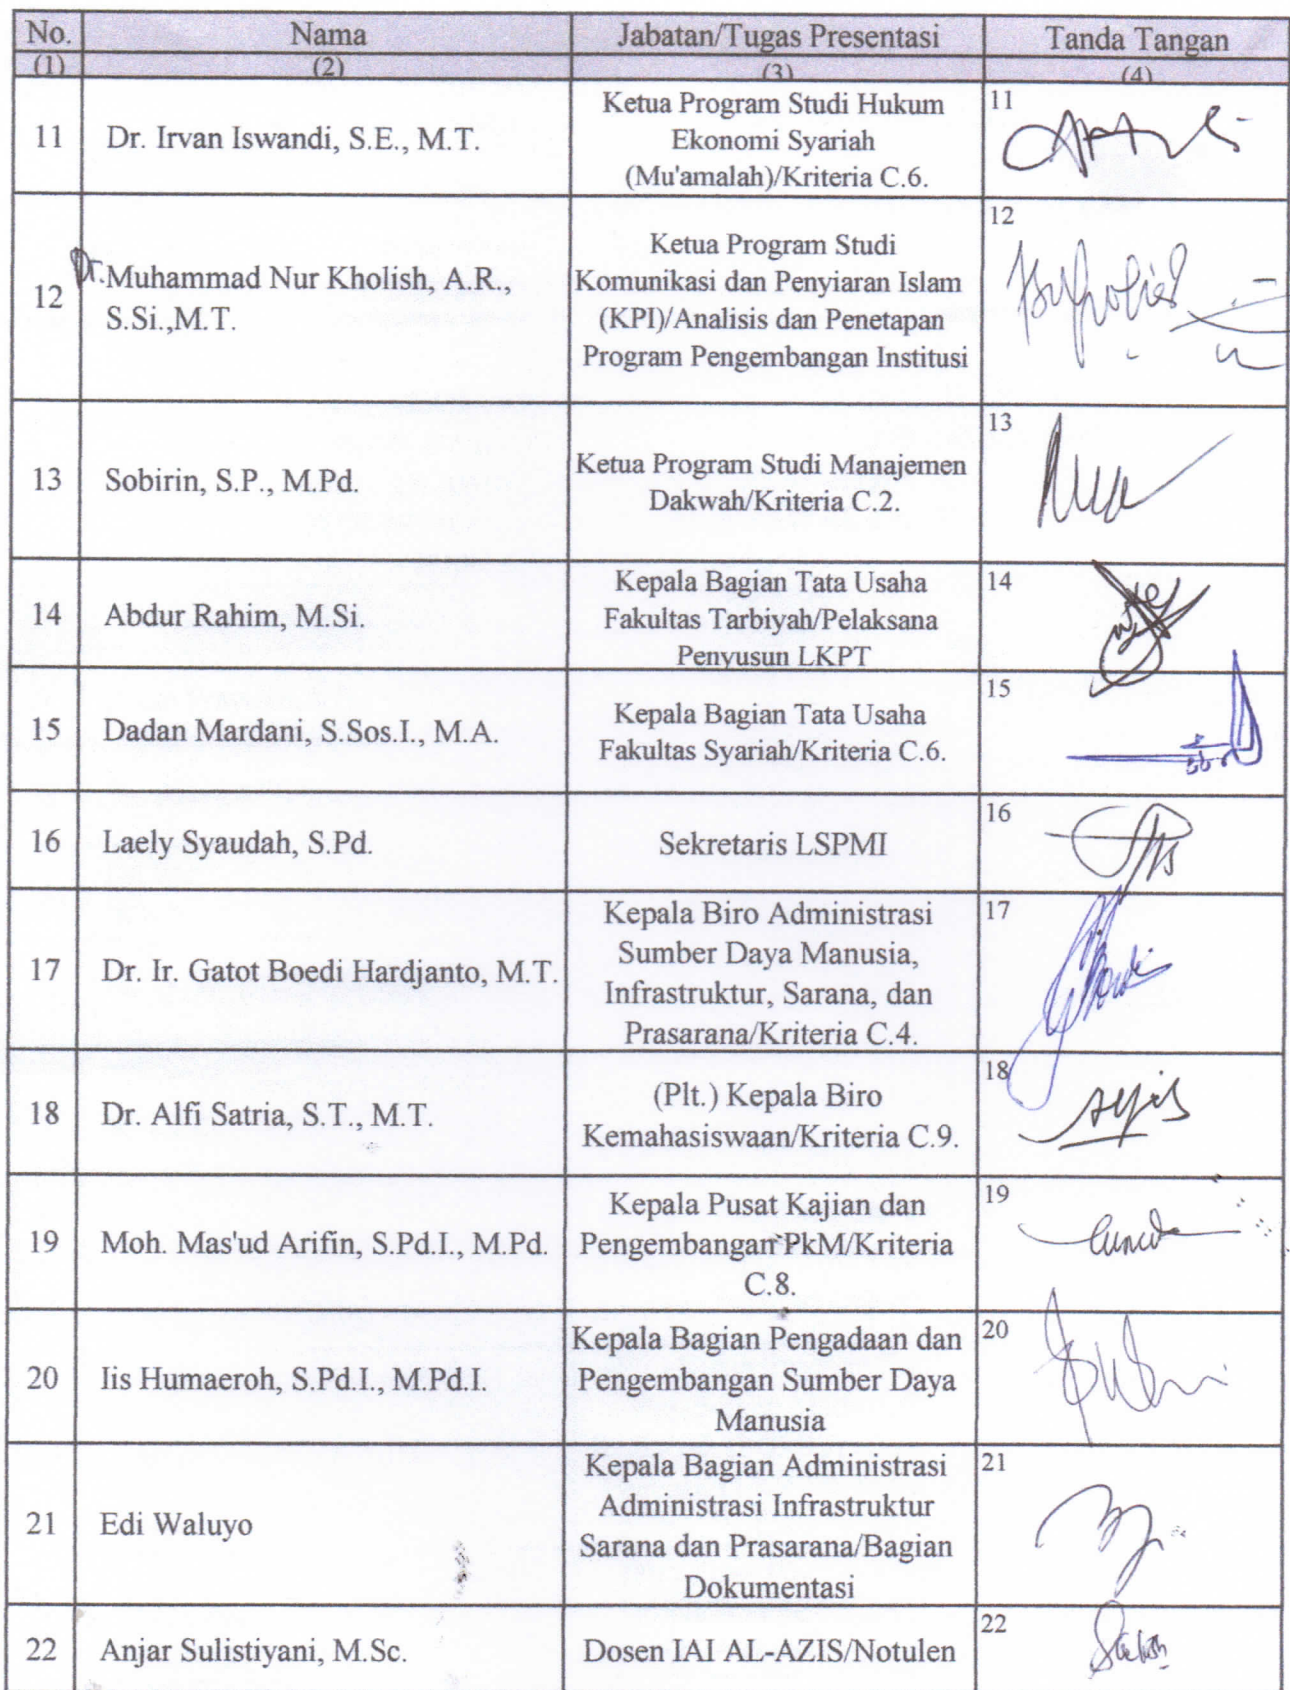 No. Nama Jabatan/Tugas Presentasi Tanda Tangan
(1) (2) (3) (4)
11 Dr. Irvan Iswandi, S.E., M.T. Ketua Program Studi Hukum 11
Ekonomi Syariah
(Mu'amalah)/Kriteria C.6.
12 Dr. Muhammad Nur Kholish, A.R., Ketua Program Studi 12
S.Si.,M.T. Komunikasi dan Penyiaran Islam
(KPI)/Analisis dan Penetapan
Program Pengembangan Institusi
13 Sobirin, S.P., M.Pd. Ketua Program Studi Manajemen 13
Dakwah/Kriteria C.2.
14 Abdur Rahim, M.Si. Kepala Bagian Tata Usaha 14
Fakultas Tarbiyah/Pelaksana
Penyusun LKPT
15 Dadan Mardani, S.Sos.I., M.A. Kepala Bagian Tata Usaha 15
Fakultas Syariah/Kriteria C.6.
16 Laely Syaudah, S.Pd. Sekretaris LSPMI 16
17 Dr. Ir. Gatot Boedi Hardjanto, M.T. Kepala Biro Administrasi 17
Sumber Daya Manusia,
Infrastruktur, Sarana, dan
Prasarana/Kriteria C.4.
18 Dr. Alfi Satria, S.T., M.T. (Plt.) Kepala Biro 18
Kemahasiswaan/Kriteria C.9.
19 Moh. Mas'ud Arifin, S.Pd.I., M.Pd. Kepala Pusat Kajian dan 19
Pengembangan PkM/Kriteria
C.8.
20 Iis Humaeroh, S.Pd.I., M.Pd.I. Kepala Bagian Pengadaan dan 20
Pengembangan Sumber Daya
Manusia
21 Edi Waluyo Kepala Bagian Administrasi 21
Administrasi Infrastruktur
Sarana dan Prasarana/Bagian
Dokumentasi
22 Anjar Sulistiyani, M.Sc. Dosen IAI AL-AZIS/Notulen 22